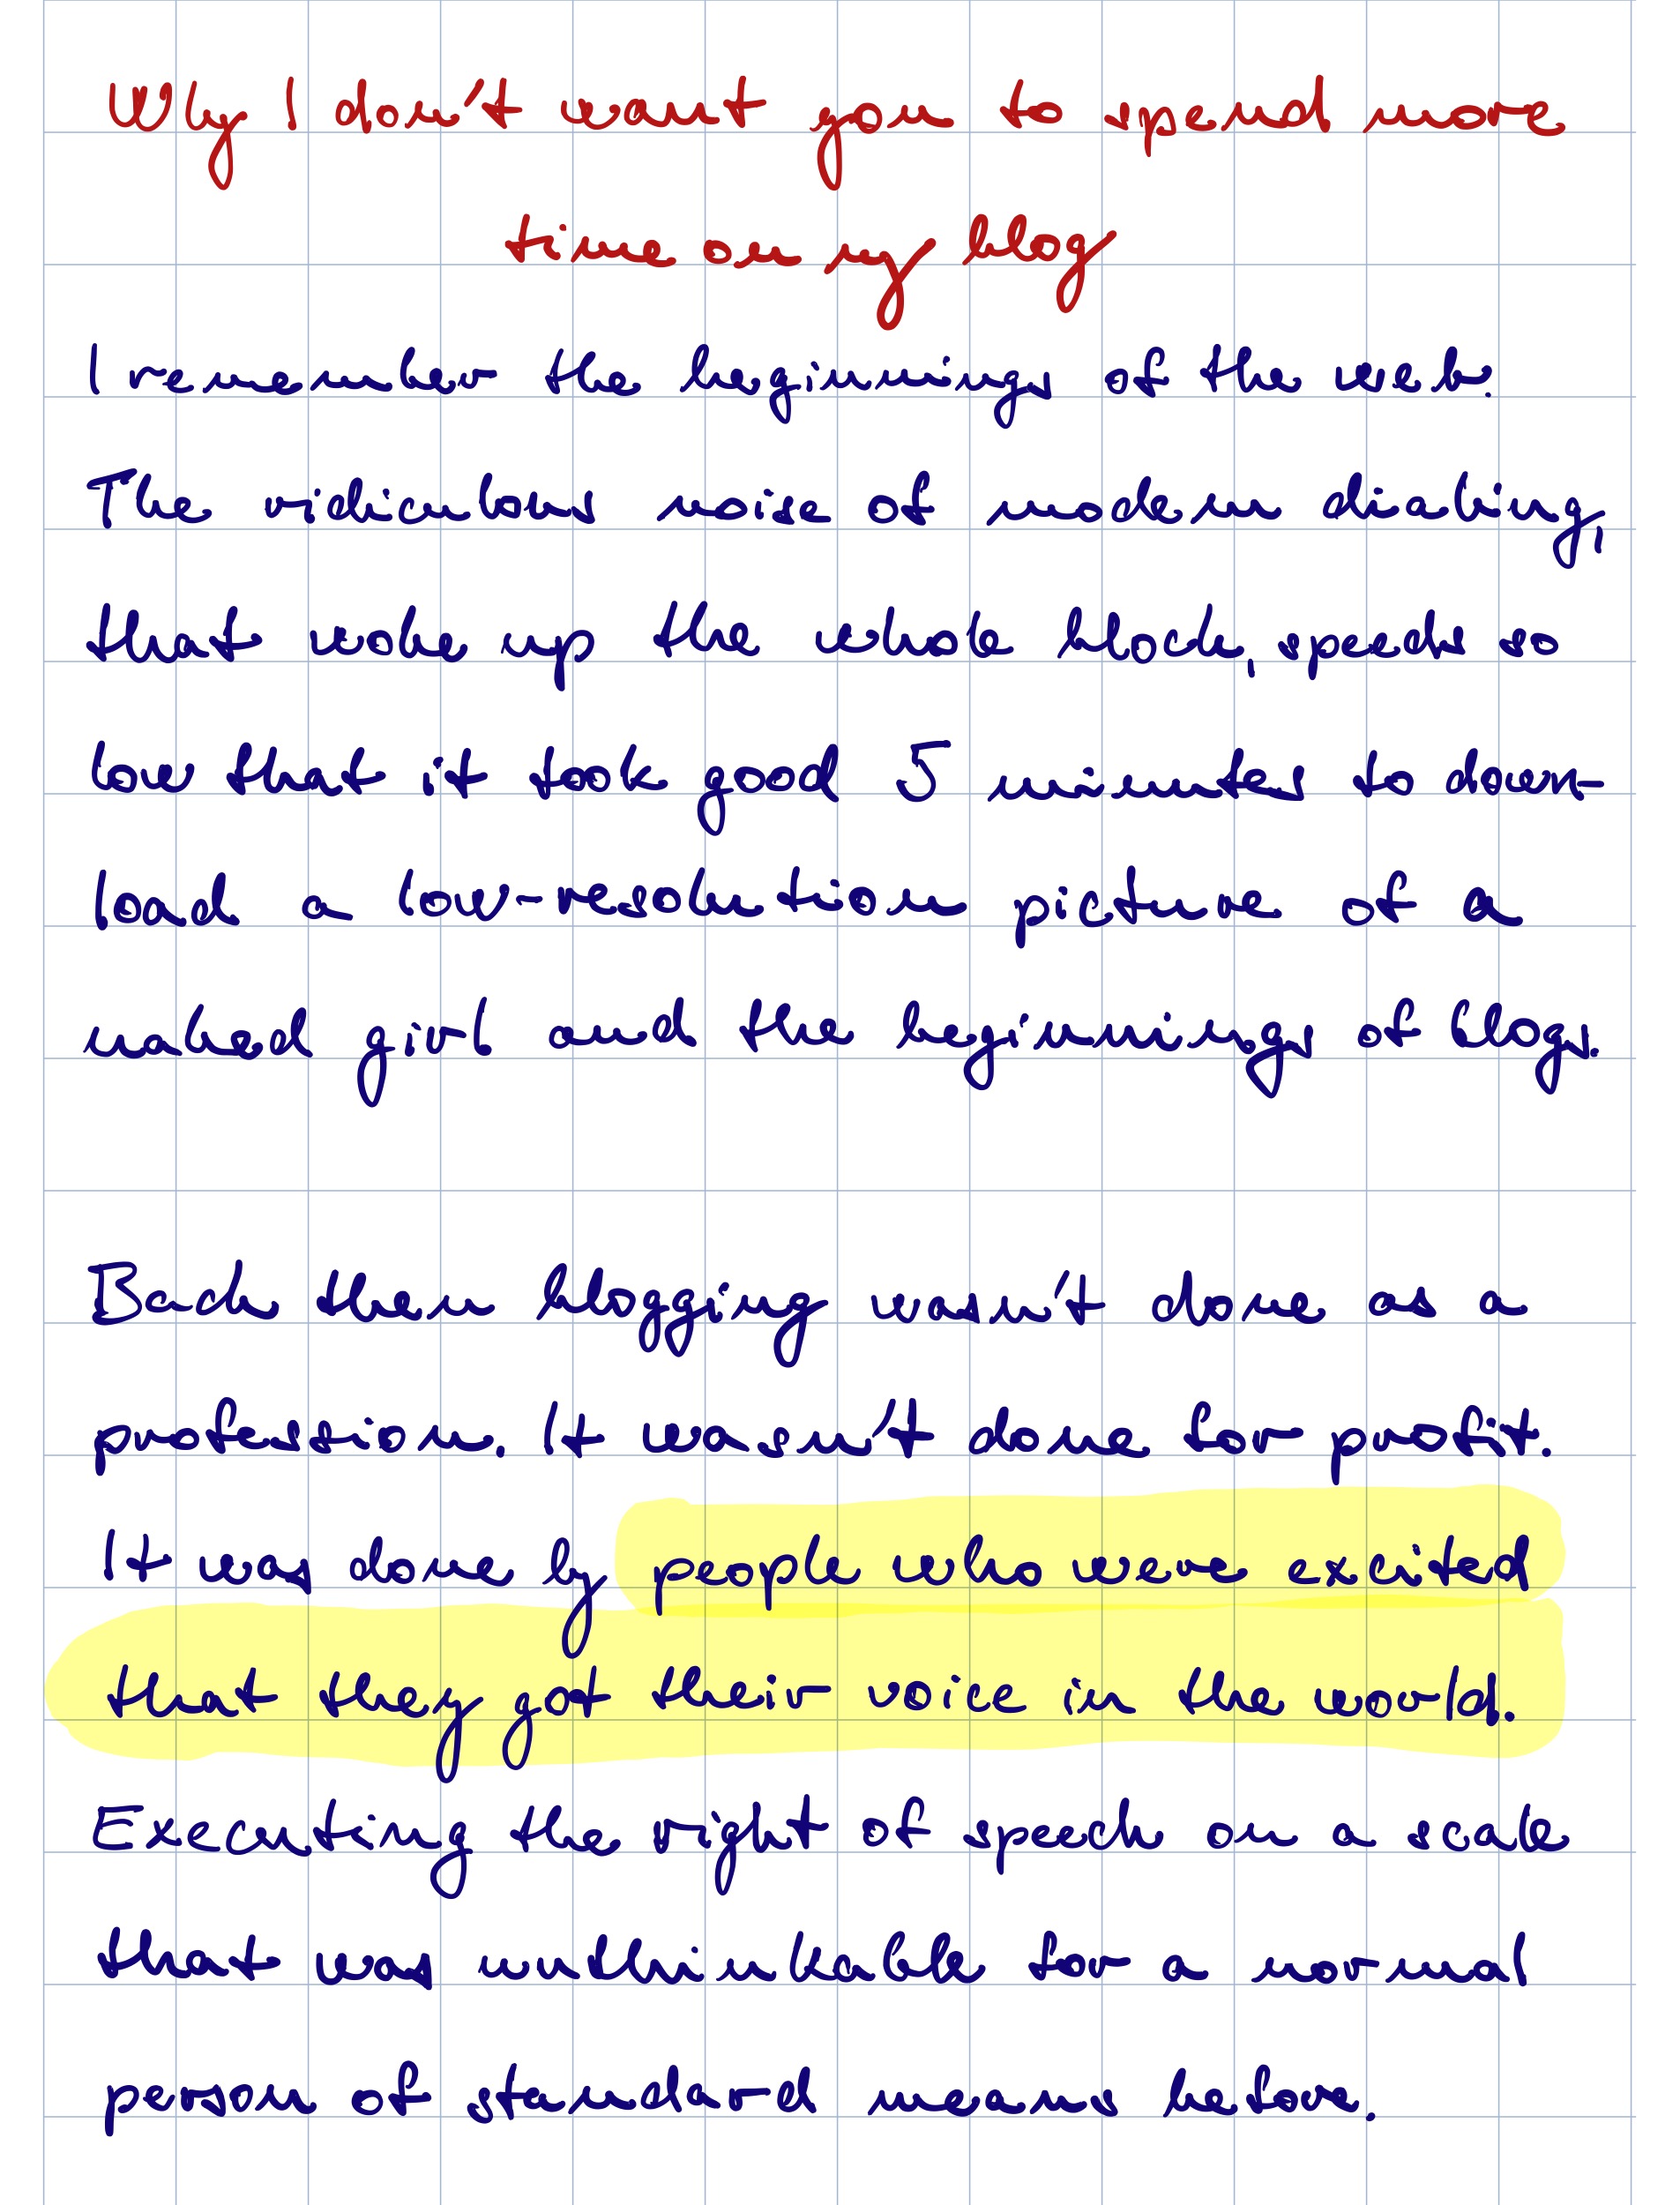 Why I don't want you to spend more
time on my blog
I remember the beginnings of the web.
The ridiculous noise of modem dialing,
that woke up the whole block, speeds so
low that it took good 5 minutes to down-
load a low-resolution picture of a
naked girl and the beginnings of blogs.
Back then blogging wasn't done as a
profession. It wasn't done for profit.
It was done by people who were excited
that they got their voice in the world.
Executing the right of speech on a scale
that was unthinkable for a normal
person of standard means before.